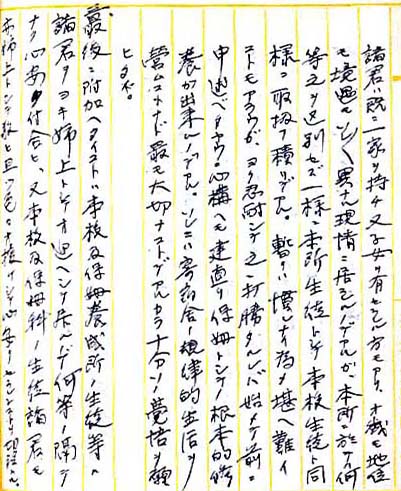 諸君ハ既ニ一家ヲ持チ又子女ヲ有セラルヽ方モアリ、才識モ地位
モ境遇モ少シク異ナル現情ニ居ラルヽノデアルガ、本所ニ於テハ何
等之ヲ区別セズ一様ニ本所生徒トシテ本校生徒ト同
様ニ取扱フ積リデアル。暫クハ慣レナイ為メ堪ヘ難イ
コトモアラウガ、ヨク忍耐シテ之ニ打勝タルレバ始メテ前ニ
申述ベタヤウナ心構ヘモ建直リ保姆トシテノ根本的修
養ガ出来ルノデアル。ソレニハ寄宿舎ノ規律的生活ヲ
営ムコトナド最モ大切ナコトデアルカラ十分ノ覚悟ヲ願
ヒタイ。
最後ニ附加ヘタイコトハ本校及保姆養成所ノ生徒等ハ
諸君ヲヨキ姉上トシテオ迎ヘシテ居ルノデ何等ノ隔テ
ナク心安ク付合ヒ、又本校及保姆科ノ生徒諸君モ
姉上トシテ敬ヒ且ツ